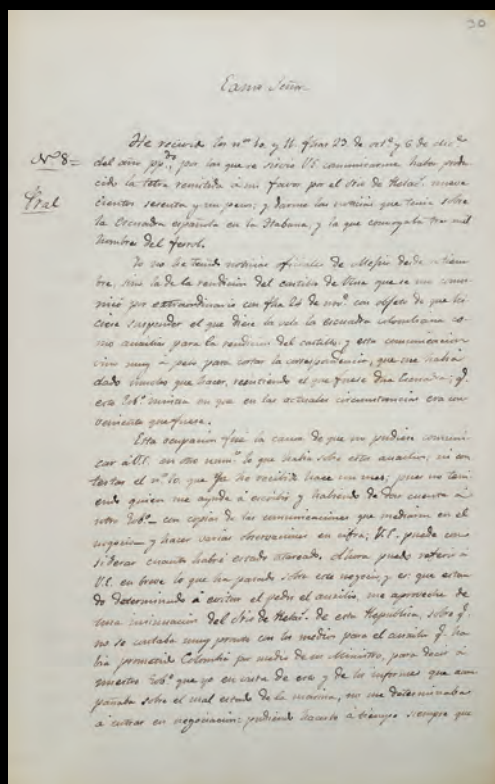 30
Exmo Señor
He recivido los nos 10. y 11. fhas 23. de octe y 6 de dice
Nº 8=
del año pp.do, por las que se sirvió V.E. comunicarme haber produ
cido la letra remitida á mi favor por el Srio de Relacs nueve
Pral
cientos sesenta y un pesos; y darme las noticias que tenia sobre
la Escuadra española en la Habana, y la que comboyaba tres mil
hombres del ferrol.
Yo no he tenido noticias oficiales de Mejico desde setiem
bre, sino la de la rendicion del castillo de Ulua que se me comu
nicó por extraordinario con fha 24 de nove con objeto de que hi
ciese suspender el que diese la vela la escuadra colombiana co
mo ausiliar para la rendicion del castillo; y esta comunicacion
vino muy á pelo para cortar la correspondencia, que me habia
dado mucho que hacer, resistiendo el que fuese dha Escuadra; q.
este Gobo insistia en que en las actuales circunstancias era con
veniente que fuese.
Esta ocupacion fué la causa de que no pudiera comuni
car á V.E. en otro numo lo que habia sobre estos ausilios; ni con
testar el nº 10. que he recibido hace un mes; pues no teni
endo quien me ayude á escribir y habiendo de dar cuenta á
ntro Gobo con copias de las comunicaciones que mediaron en el
negocio y hacer varias observaciones en cifra; V.E. puede con
siderar cuanto habré estado atareado. Ahora puedo referir á
V.E. en breve lo que ha pasado sobre este negocio, y es que estan
do determinado á evitar el pedir el ausilio, me aproveché de
una insinuacion del Srio de Relacs de esta Republica, sobre q.
no se contaba muy pronto con los medios para el ausilio q. ha
bia prometido Colombia por medio de su Ministro, para decir á
nuestro Gobo que yo en vista de eso y de los informes que acom
pañaba sobre el mal estado de la marina, no me determinaba
á entrar en negociacion: pudiendo hacerlo á tiempo siempre que